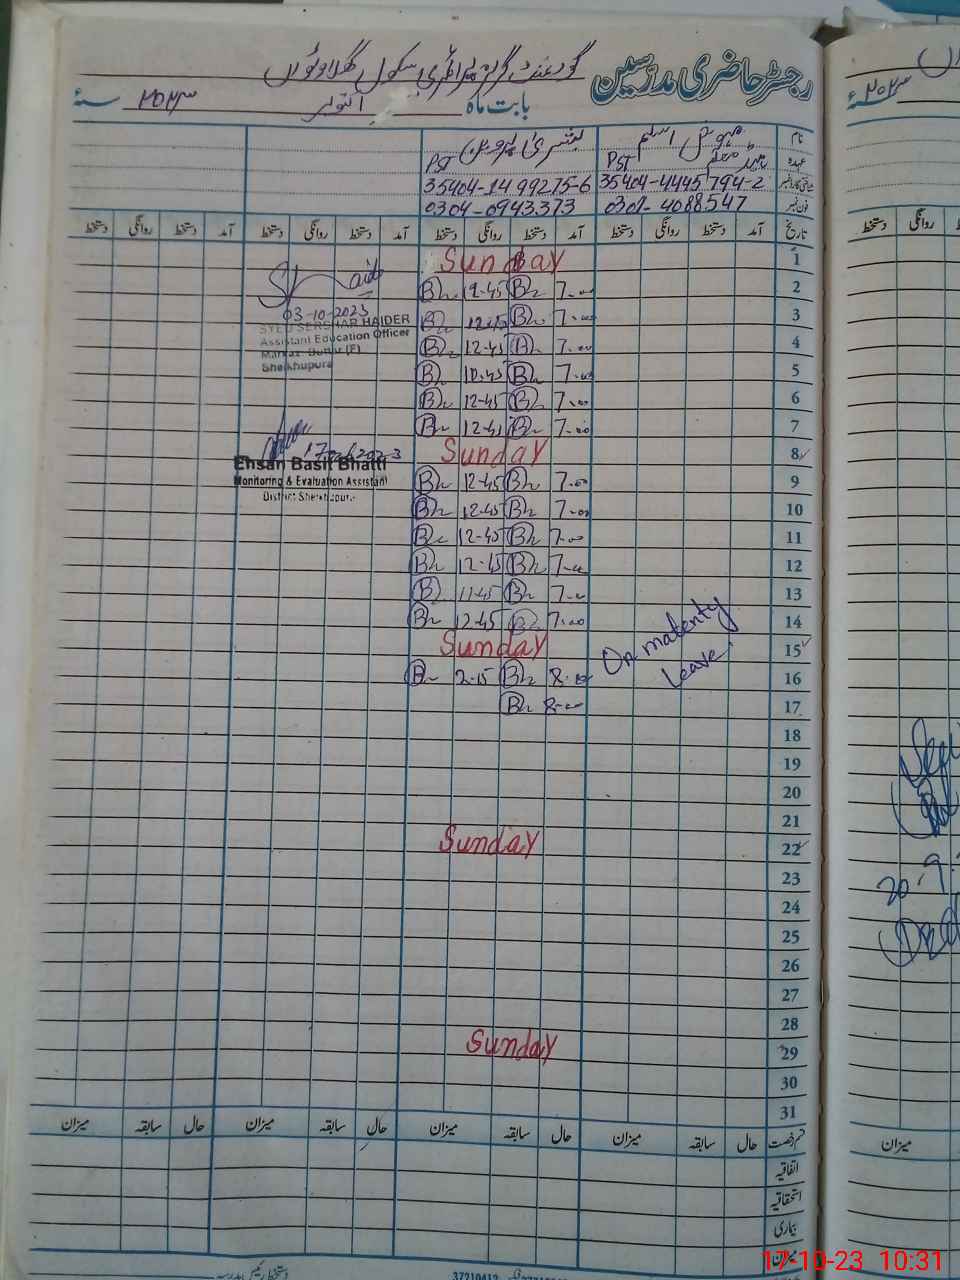 رجسٹر حاضری مدرسین گورنمنٹ گرلز پرائمری سکول
بابت ماہ اکتوبر ۲۰۲۳ سنۂ
نام
عہدہ PST PST
شناختی کارڈ نمبر 35404-4445794-2 35404-1499275-6
فون نمبر 0307-4088547 0304-0943373
تاریخ آمد دستخط روانگی دستخط آمد دستخط روانگی دستخط آمد دستخط روانگی دستخط آمد دستخط روانگی دستخط
1 Sunday
2 7-00 12-45
3 7-00 12-45
4 7-00 12-45
5 7-00 12-45
6 7-00 12-45
7 7-00 12-45
8 Sunday
9 7-00 12-45
10 7-00 12-45
11 7-00 12-45
12 7-00 12-45
13 7-00 11-45
14 7-00 12-45
15 Sunday
16 8-00 2-15
17 8-00
18
19
20
21
22 Sunday
23
24
25
26
27
28
29 Sunday
30
31
On matenty
Leave
03-10-2023
SYED SERSHAR HAIDER
Assistant Education Officer
Markaz Buttar (F)
Sheikhupura
Ehsan Basit Bhatti
Monitoring & Evaluation Assistant
District Sheikhupura
قسم رخصت حال سابقہ میزان حال سابقہ میزان حال سابقہ میزان حال سابقہ میزان
اتفاقیہ
استحقاقیہ
بیماری
میزان
37210412
۲۰۲۳ سنۂ
دستخط روانگی
20.9
میزان
17-10-23 10:31